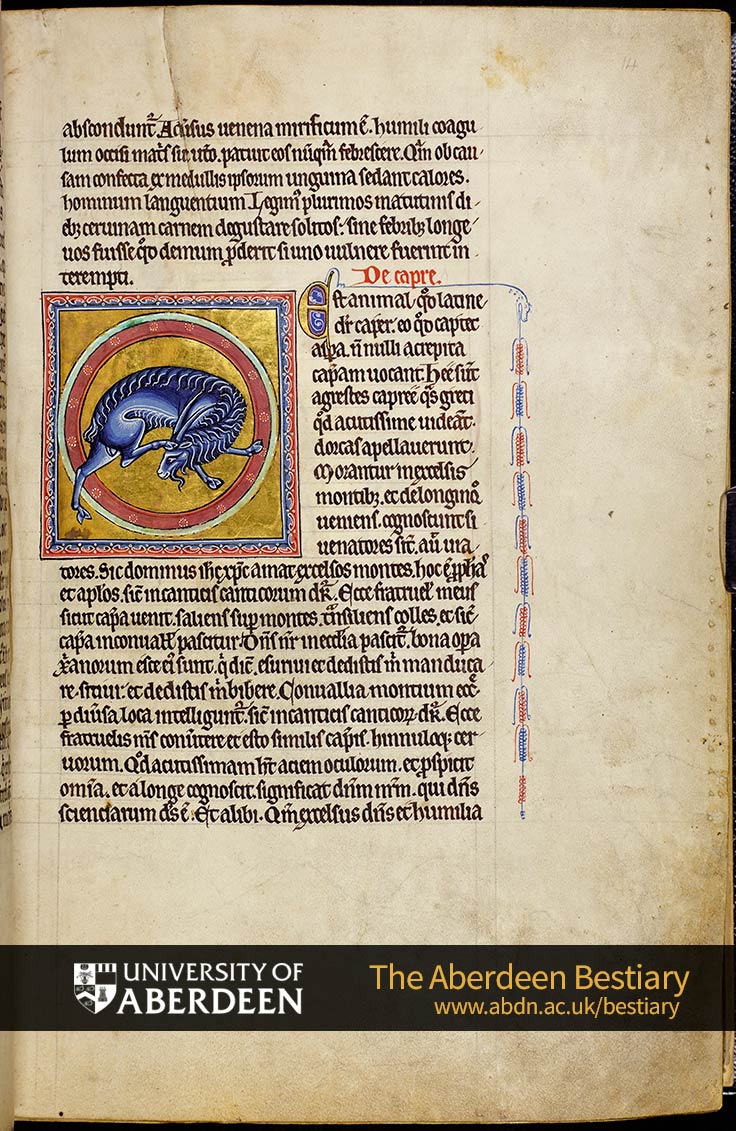 14
abscondunt᷑. Aduersus uenena mirificum ē. humili coagu
lum occisi mat̃s sui ut̃o. patuit eos nūq̃m febrescere. Qm̃ ob cau
sam confecta ex medullis ipsorum unguina sedant calores.
hominum languentium. Legimꝰ plurimos matutinis di
ebꝫ ceruinam carnem degustare solitos. sine febribꝫ longe
uos fuisse qđ demum ꝓderit si uno uulnere fuerint in
terempti.
De capre.
Est animal qđ latine
dr̃ caper. eo qđ captet
aspa. ñ nulli a crepita
cap̃am uocant. Hee sūt
agrestes capree q̃s greci
qđ acutissime uideāt.
dorcas apellauerunt.
Morantur in excelsis
montibꝫ. et de longinq̃
uemens. cognoscunt si
uenatores sīt. aū uia
tores. Sic dominus ihc̄ xp̄c amat excelsos montes. hoc ē ꝓph̃as
et aplõs. sic̃ in canticis canticorum dr̃. Ecce fratruel᷒ meus
sicut cap̃a uenit. saliens suꝑ montes. tr̃nsiliens colles. et sic̃
cap̃a in conuall᷒ pascitur. Dñs nr̃ in ecclia pascit᷑. bona oꝑa
xp̃ianorum esce ei sunt. q̇ dic̃. esuriui et dedistis m̃ manduca
re. sitiui. et dedistis m̃ bibere. Conuallia montium ecc̃
ꝑ diũsa loca intelligunt᷑. sic̃ in canticis canticoꝝ dr̃. Ecce
fratruelis m̃s conũtere et esto similis cap̃is. hinnuloqꝫ cer
uorum. Qđ acutissimam h̃t aciem oculorum. et ꝓspicit
omĩa. et a longe cognoscit. significat dñm nr̃m. qui dñs
scienciarum ds̃ ē. Et alibi. Qm̃ excelsus dñs et humilia
UNIVERSITY OF
ABERDEEN
The Aberdeen Bestiary
www.abdn.ac.uk/bestiary